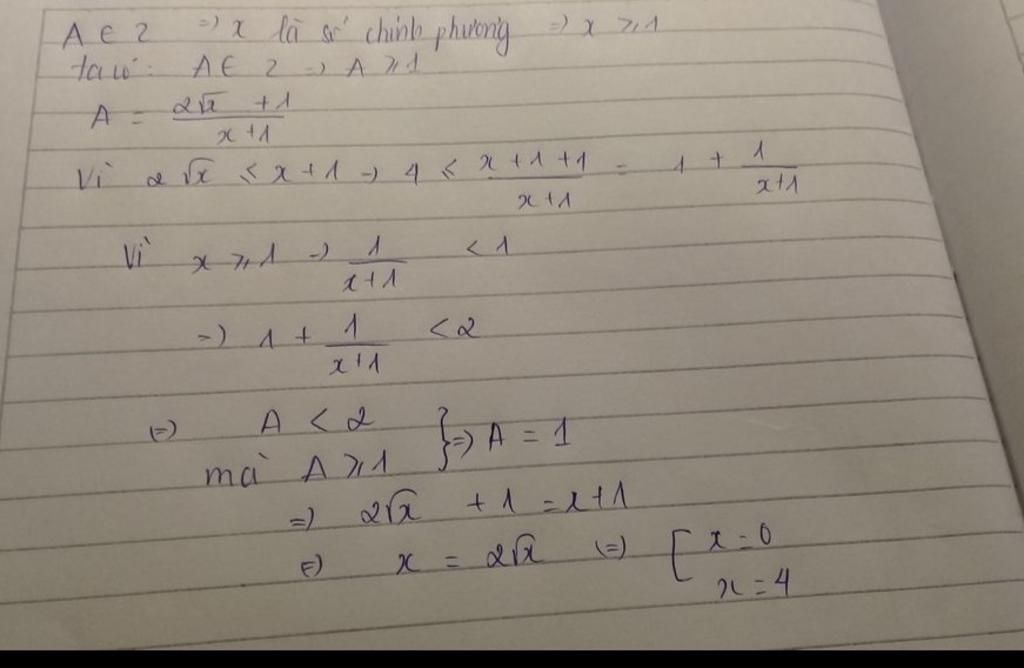 A ∈ Z => x là số chính phương => x ≥ 1
ta có: A ∈ Z => A ≥ 1
A = (2√x + 1)/(x + 1)
Vì 2√x ≤ x + 1 => A ≤ (x + 1 + 1)/(x + 1) = 1 + 1/(x + 1)
Vì x ≥ 1 => 1/(x + 1) < 1
=> 1 + 1/(x + 1) < 2
(=) A < 2
mà A ≥ 1 } => A = 1
=> 2√x + 1 = x + 1
(=) x = 2√x (=) [ x = 0
x = 4